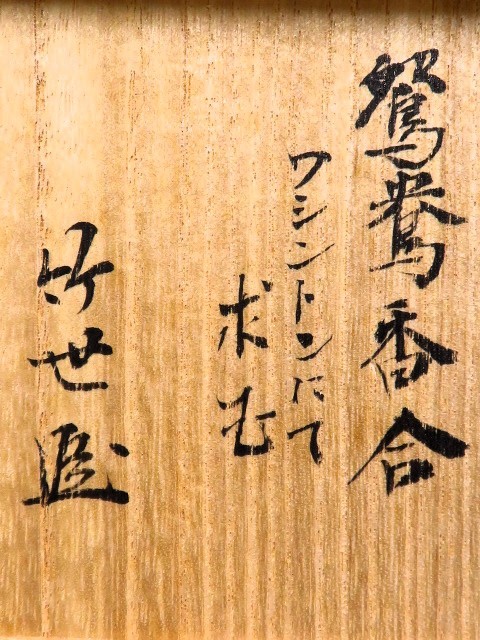 鴛鴦香合
ワシントンにて
求む
竹世